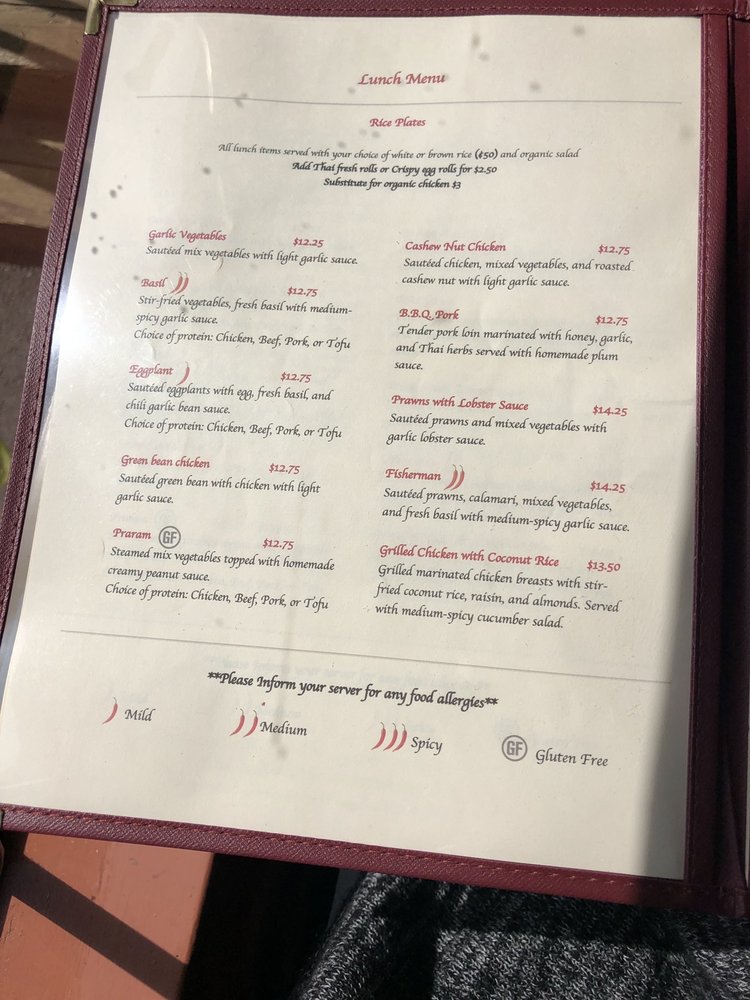 Lunch Menu
Rice Plates
All lunch items served with your choice of white or brown rice (¢50) and organic salad
Add Thai fresh rolls or Crispy egg rolls for $2.50
Substitute for organic chicken $3
Garlic Vegetables $12.25
Sautéed mix vegetables with light garlic sauce.
Basil $12.75
Stir-fried vegetables, fresh basil with medium-
spicy garlic sauce.
Choice of protein: Chicken, Beef, Pork, or Tofu
Eggplant $12.75
Sautéed eggplants with egg, fresh basil, and
chili garlic bean sauce.
Choice of protein: Chicken, Beef, Pork, or Tofu
Green bean chicken $12.75
Sautéed green bean with chicken with light
garlic sauce.
Praram GF $12.75
Steamed mix vegetables topped with homemade
creamy peanut sauce.
Choice of protein: Chicken, Beef, Pork, or Tofu
Cashew Nut Chicken $12.75
Sautéed chicken, mixed vegetables, and roasted
cashew nut with light garlic sauce.
B.B.Q. Pork $12.75
Tender pork loin marinated with honey, garlic,
and Thai herbs served with homemade plum
sauce.
Prawns with Lobster Sauce $14.25
Sautéed prawns and mixed vegetables with
garlic lobster sauce.
Fisherman $14.25
Sautéed prawns, calamari, mixed vegetables,
and fresh basil with medium-spicy garlic sauce.
Grilled Chicken with Coconut Rice $13.50
Grilled marinated chicken breasts with stir-
fried coconut rice, raisin, and almonds. Served
with medium-spicy cucumber salad.
**Please Inform your server for any food allergies**
Mild Medium Spicy GF Gluten Free